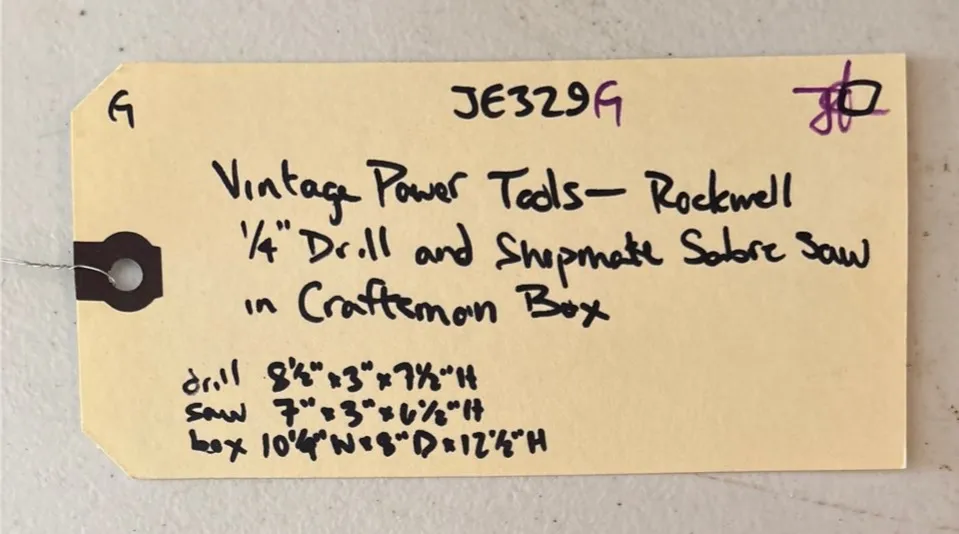 G JE329G
Vintage Power Tools— Rockwell
1/4" Drill and Shopmate Sabre Saw
in Craftsman Box
drill 8 1/2" x 3" x 7 1/2" H
saw 7" x 3" x 6 1/2" H
box 10 1/4" W x 8" D x 12 1/2" H